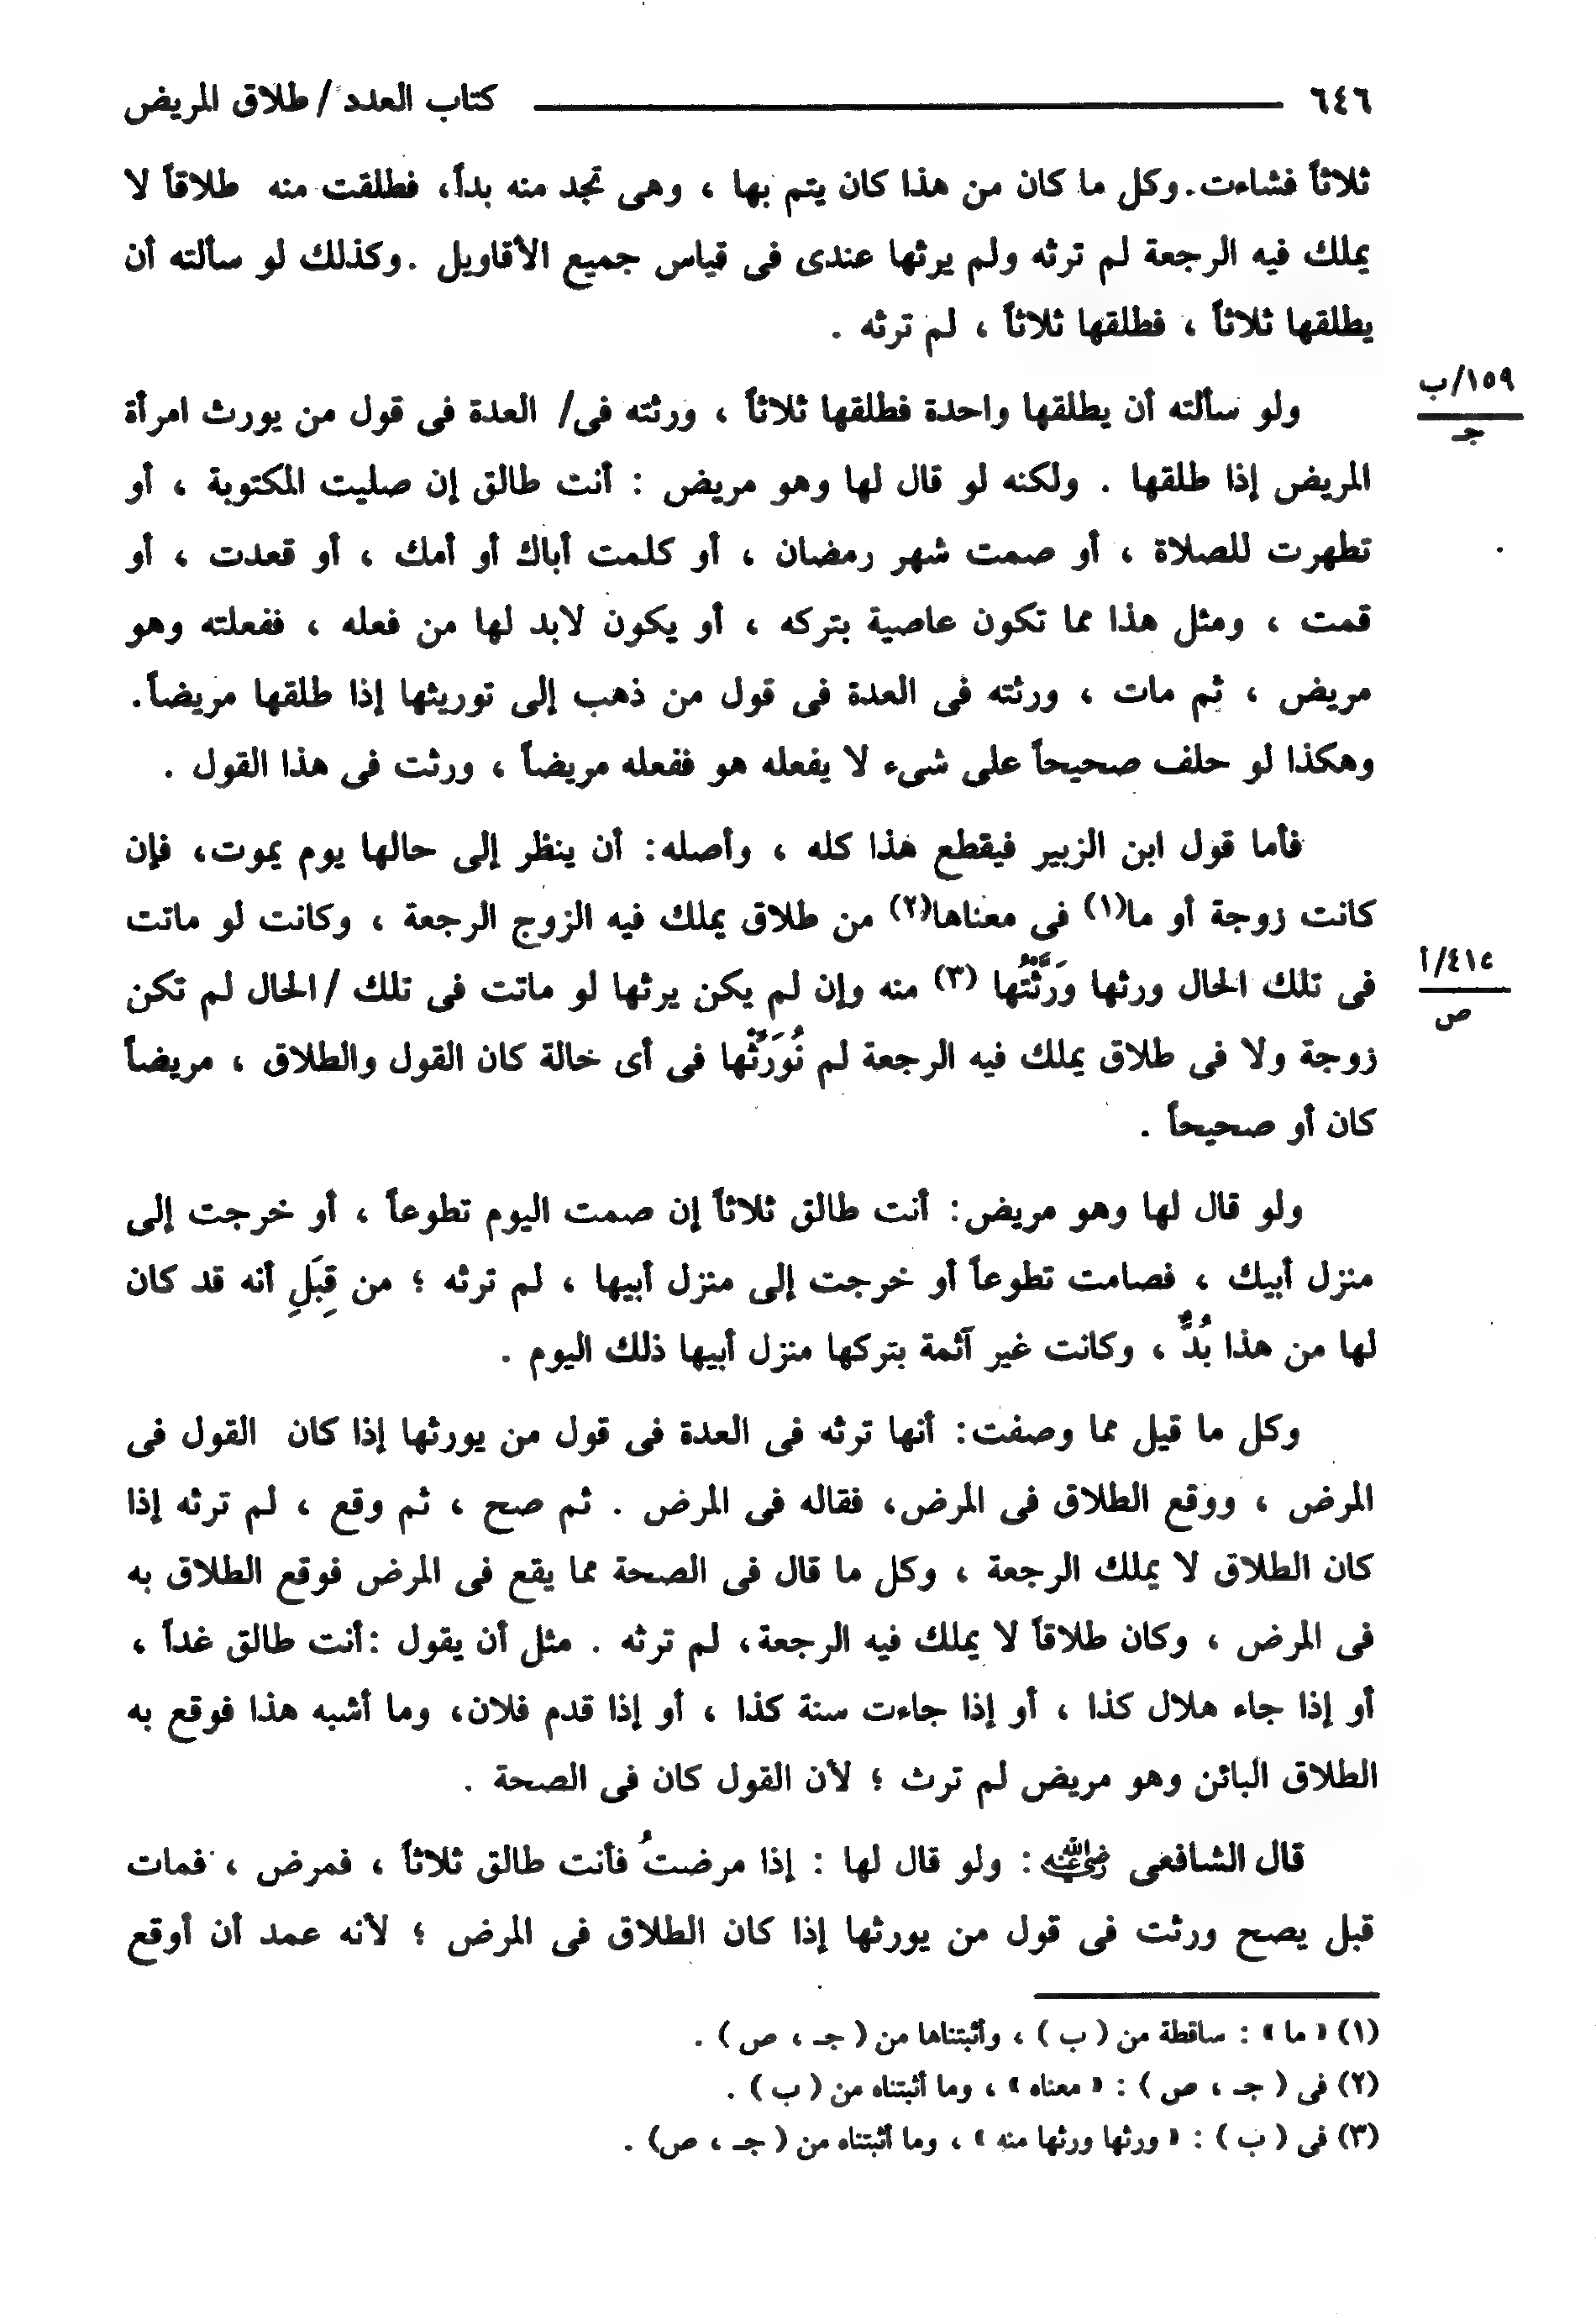 ٦٤٦ كتاب العدد / طلاق المريض
ثلاثاً فشاءت. وكل ما كان من هذا كان يتم بها ، وهى تجد منه بداً، فطلقت منه طلاقاً لا
يملك فيه الرجعة لم ترثه ولم يرثها عندى فى قياس جميع الأقاويل . وكذلك لو سألته أن
يطلقها ثلاثاً ، فطلقها ثلاثاً ، لم ترثه .
١٥٩/ب
جـ
ولو سألته أن يطلقها واحدة فطلقها ثلاثاً ، ورثته فى/ العدة فى قول من يورث امرأة
المريض إذا طلقها . ولكنه لو قال لها وهو مريض : أنت طالق إن صليت المكتوبة ، أو
تطهرت للصلاة ، أو صمت شهر رمضان ، أو كلمت أباك أو أمك ، أو قعدت ، أو
قمت ، ومثل هذا مما تكون عاصية بتركه ، أو يكون لابد لها من فعله ، ففعلته وهو
مريض ، ثم مات ، ورثته فى العدة فى قول من ذهب إلى توريثها إذا طلقها مريضاً.
وهكذا لو حلف صحيحاً على شىء لا يفعله هو ففعله مريضاً ، ورثت فى هذا القول .
فأما قول ابن الزبير فيقطع هذا كله ، وأصله: أن ينظر إلى حالها يوم يموت، فإن
كانت زوجة أو ما(١) فى معناها(٢) من طلاق يملك فيه الزوج الرجعة ، وكانت لو ماتت
فى تلك الحال ورثها وَرَّثْتُها (٣) منه وإن لم يكن يرثها لو ماتت فى تلك /الحال لم تكن
٤١٤/أ
ص
زوجة ولا فى طلاق يملك فيه الرجعة لم نُوَرِّثْها فى أى حالة كان القول والطلاق ، مريضاً
كان أو صحيحاً .
ولو قال لها وهو مريض: أنت طالق ثلاثاً إن صمت اليوم تطوعاً ، أو خرجت إلى
منزل أبيك ، فصامت تطوعاً أو خرجت إلى منزل أبيها ، لم ترثه ؛ من قِبَلِ أنه قد كان
لها من هذا بُدٌّ ، وكانت غير آثمة بتركها منزل أبيها ذلك اليوم .
وكل ما قيل مما وصفت: أنها ترثه فى العدة فى قول من يورثها إذا كان القول فى
المرض ، ووقع الطلاق فى المرض، فقاله فى المرض . ثم صح ، ثم وقع ، لم ترثه إذا
كان الطلاق لا يملك الرجعة ، وكل ما قال فى الصحة مما يقع فى المرض فوقع الطلاق به
فى المرض ، وكان طلاقاً لا يملك فيه الرجعة، لم ترثه . مثل أن يقول :أنت طالق غداً ،
أو إذا جاء هلال كذا ، أو إذا جاءت سنة كذا ، أو إذا قدم فلان، وما أشبه هذا فوقع به
الطلاق البائن وهو مريض لم ترث ؛ لأن القول كان فى الصحة .
قال الشافعى رضي الله عنه : ولو قال لها : إذا مرضتُ فأنت طالق ثلاثاً ، فمرض ، فمات
قبل يصح ورثت فى قول من يورثها إذا كان الطلاق فى المرض ؛ لأنه عمد أن أوقع
(١) « ما » : ساقطة من ( ب ) ، وأثبتناها من ( جـ ، ص ) .
(٢) فى ( جـ ، ص ) : « معناه » ، وما أثبتناه من ( ب ) .
(٣) فى ( ب ) : « ورثها ورثها منه » ، وما أثبتناه من ( جـ ، ص) .